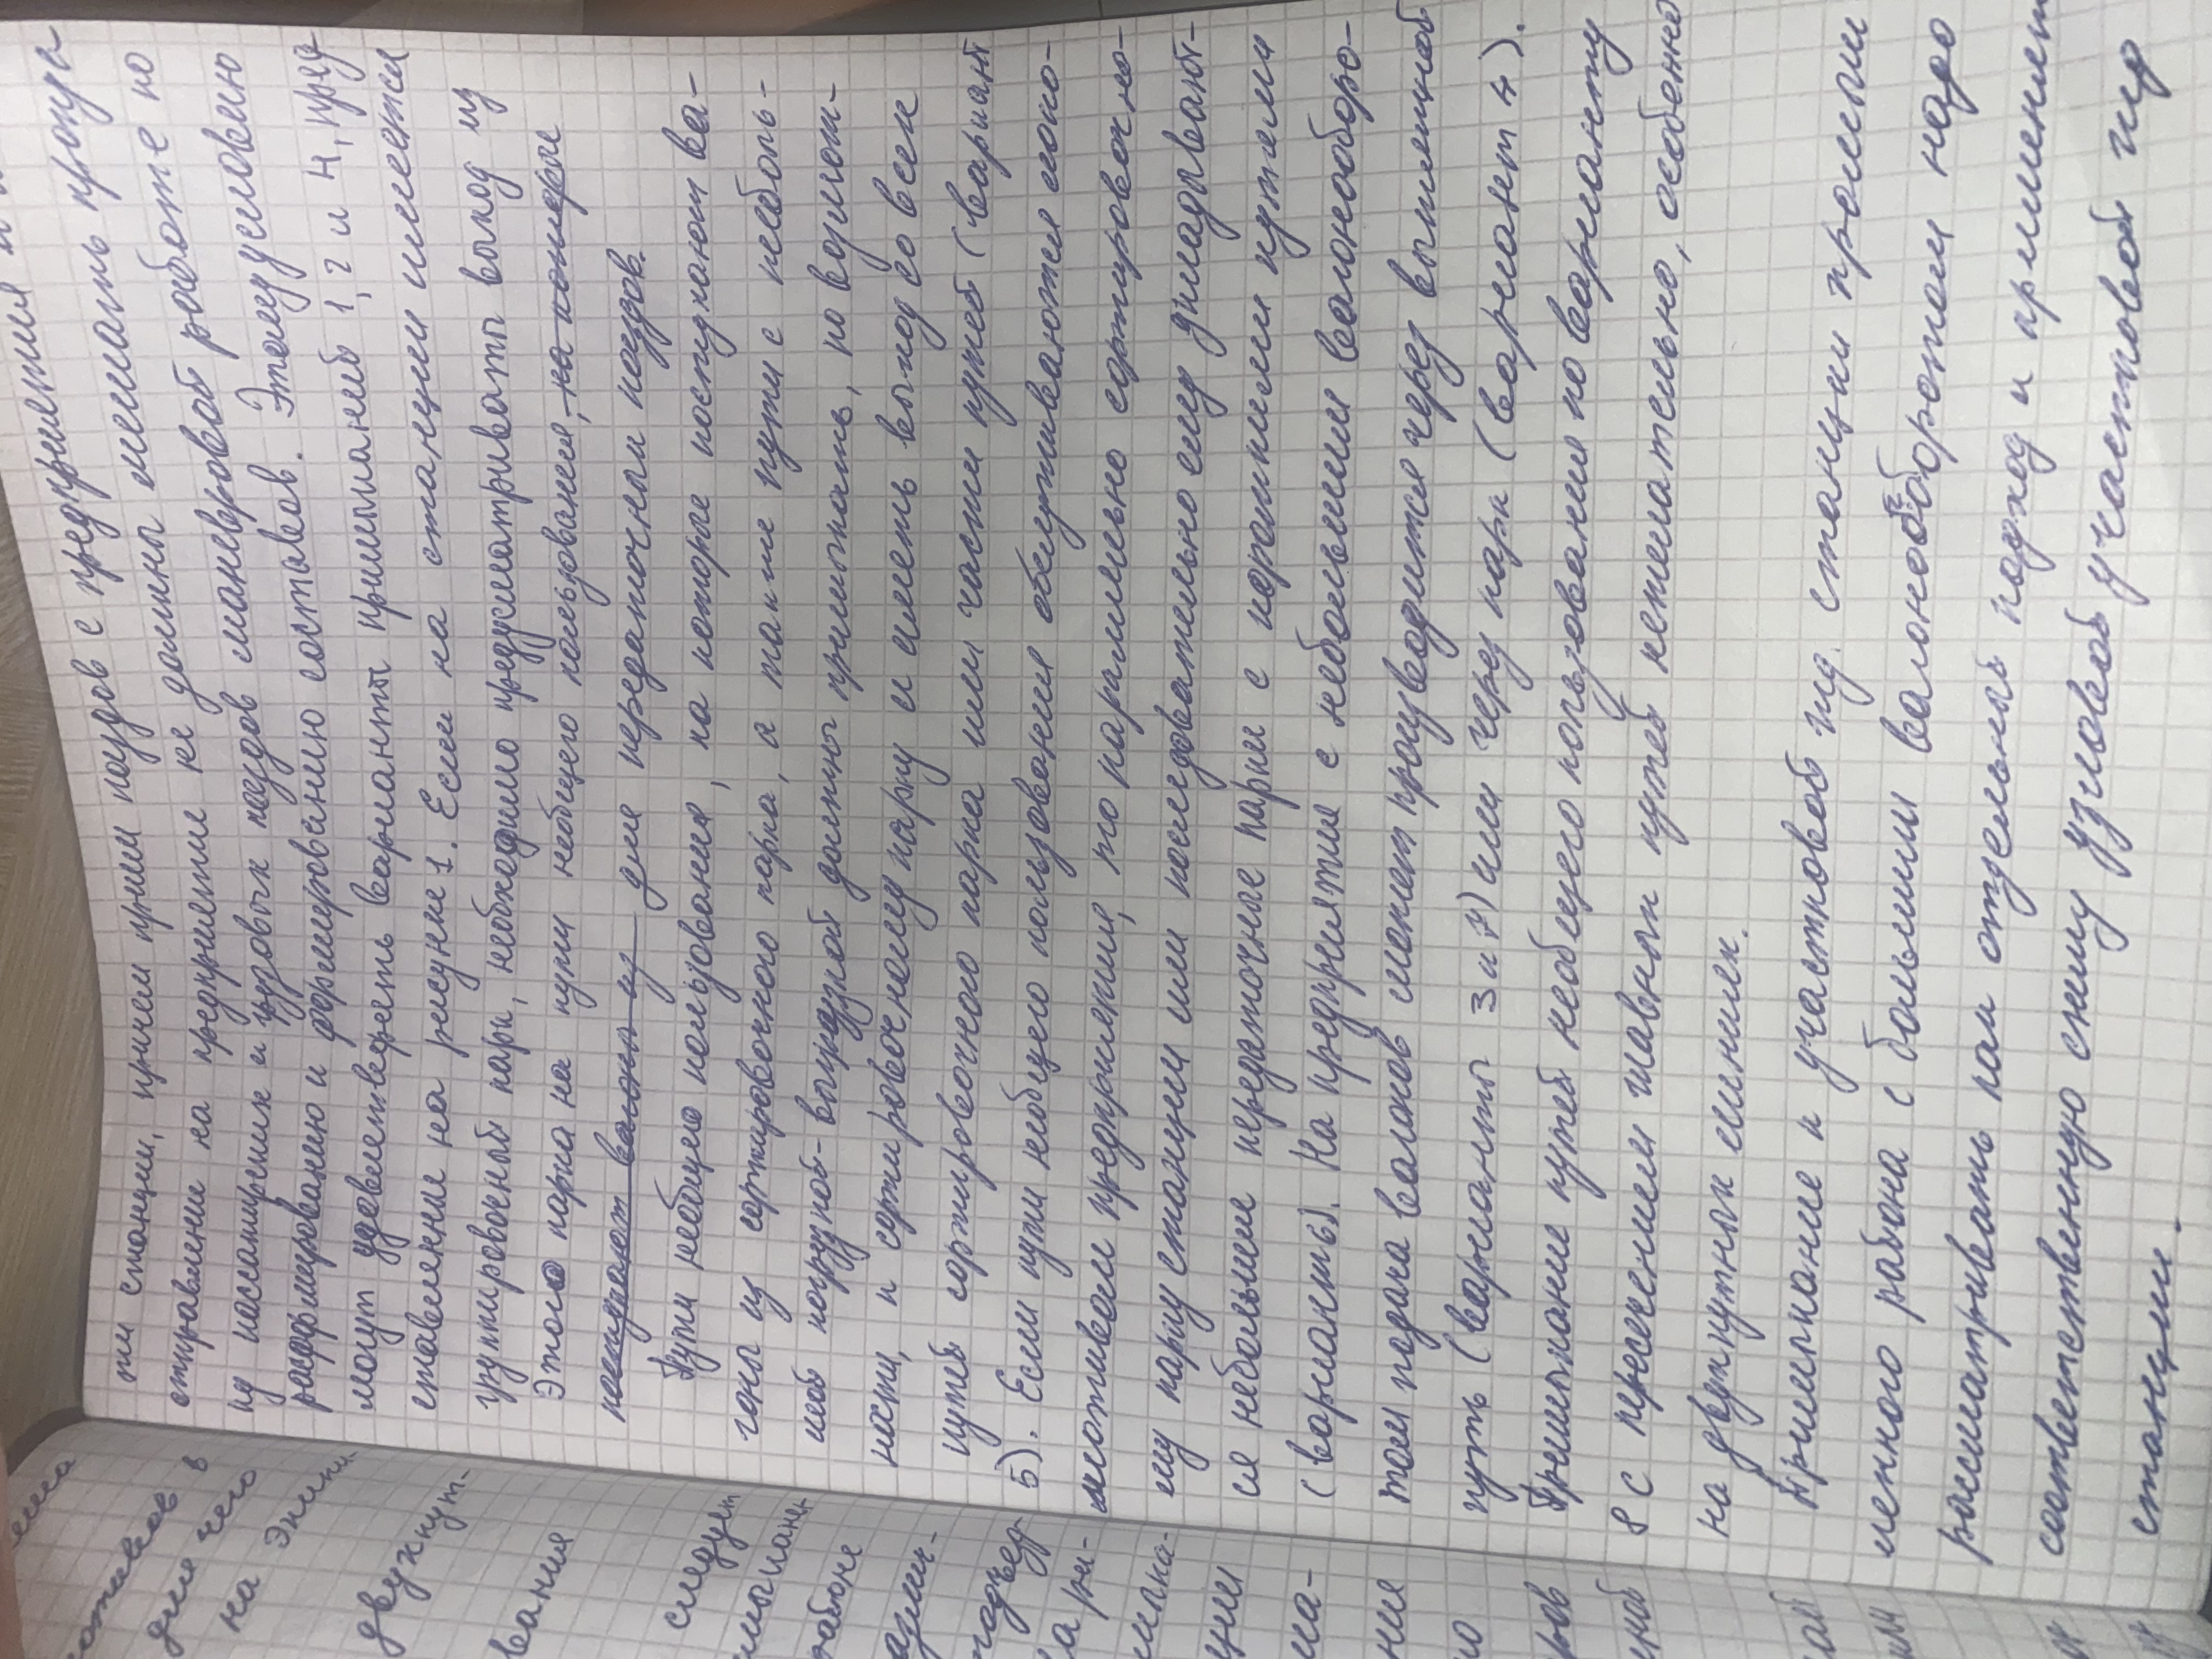 предприятия
ти станции, причем прием поездов с предприятия и
отправление на предприятие не должны мешать пропус
ку пассажирских и грузовых поездов маневровой работе по
расформированию и формированию составов. Этому условию
могут удовлетворять варианты примыканий 1, 2 и 4, пред
ставленные на рисунке 1. Если на станции имеется
группировочный парк, необходимо предусматривать выход из
Этого парка на пути необщего пользования, на которые
поступают вагоны из для передаточных поездов.
Пути необщего пользования, на которые поступают ва-
гоны из сортировочного парка, а также пути с неболь-
шой погрузкой-выгрузкой должны примыкать, по возмож-
ности, к сортировочному парку и иметь выход со всех
путей сортировочного парка или части путей (вариант
5). Если пути необщего пользования обслуживаются локо-
мотивами предприятия, то параллельно сортировочно-
му парку станции или последовательно ему укладывают-
ся небольшие передаточные парки с короткими путями
(варианты 6). На предприятия с небольшими вагонооборо-
том подача вагонов может производится через вытяжной
путь (варианты 3 и 7) или через парк (вариант 4).
Примыкание путей необщего пользования по варианту
8 с пересечением главных путей нежелательно, особенно
на двухпутных линиях.
Примыкание к участковой жд. станции промыш
ленного района с большим вагонооборотом надо
рассматривать как отдельный подход и применять
соответственную схему узловой участковой жд
станции.
ема
для чего
на
двухпут-
вания
следует